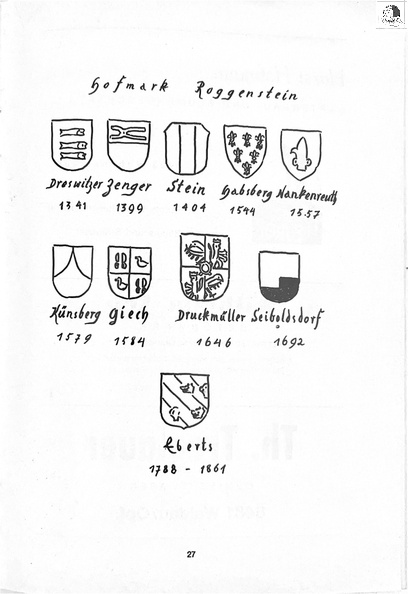 Hofmark Roggenstein
Dreswitzer Zenger Stein Habsberg Nankenreuth
1341 1399 1404 1544 1557
Künsberg Giech Druckmüller Seiboldsdorf
1579 1584 1646 1692
Eberts
1788 - 1861
27